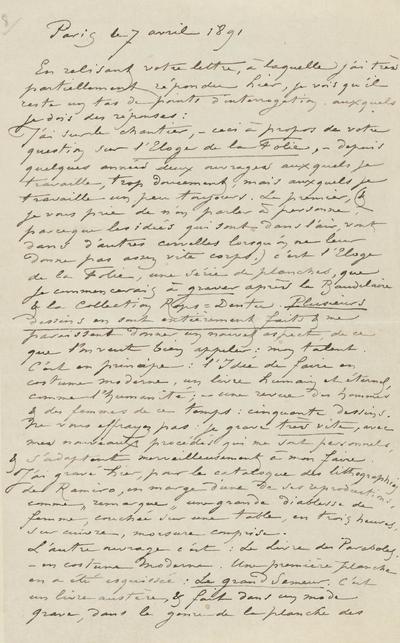 Paris le 7 avril 1891
En relisant votre lettre, à laquelle j'ai très
partiellement répondu hier, je vois qu'il
reste un tas de points d'interrogation auxquels
je dois des réponses:
J'ai sur le chantier, – ceci à propos de votre
question sur l'Eloge de la Folie, – depuis
quelques années deux ouvrages auxquels je
travaille, trop doucement, mais auxquels je
travaille un peu toujours. Le premier, &
je vous prie de n'en parler à personne,
parceque les idées qui sont dans l'air, vont
dans d'autres cervelles lorsqu'on ne leur
donne pas assez vite corps, c'est l'Eloge
de la Folie, une série de planches, que
je commencerais à graver après le Baudelaire
& la Collection Rops-Dentu. Plusieurs
dessins en sont entièrement faits & me
paraissent donner un nouvel aspect de ce
que l'on veut bien appeler: mon talent
C'est en principe: l'Idée de faire en
costume moderne, un livre humain et éternel,
comme l'humanité; – une revue des hommes
& des femmes de ce temps: cinquante dessins.
Ne vous effrayez pas: je grave très vite, avec
mes nouveaux procédés qui me sont personnels,
& s'adaptent merveilleusement à mon faire.
J'ai gravé hier, pour le catalogue des lithographies
de Ramiro, en marge d'une de ses reproductions,
comme "remarque" une grande diablesse de
femme, couchée sur une table, en trois heures,
sur cuivre, morsure comprise.
L'autre ouvrage c'est: Le Livre des Paraboles,
– en costume moderne. Une première planche
en a été esquissée: Le grand Semeur. C'est
un livre austère, & fait dans un mode
grave, dans le genre de la planche des